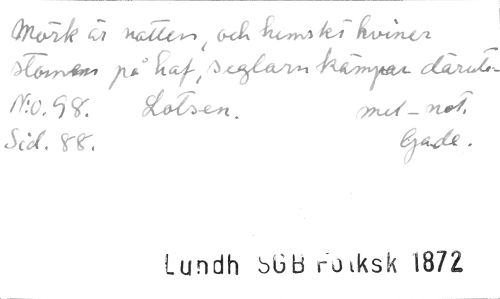 Mörk är natten, och hemskt hviner
stormen på haf, seglarn kämpar därute
N:o. 98. Lotsen. mel-not.
Sid. 88. Gade.
Lundh SGB Folksk 1872